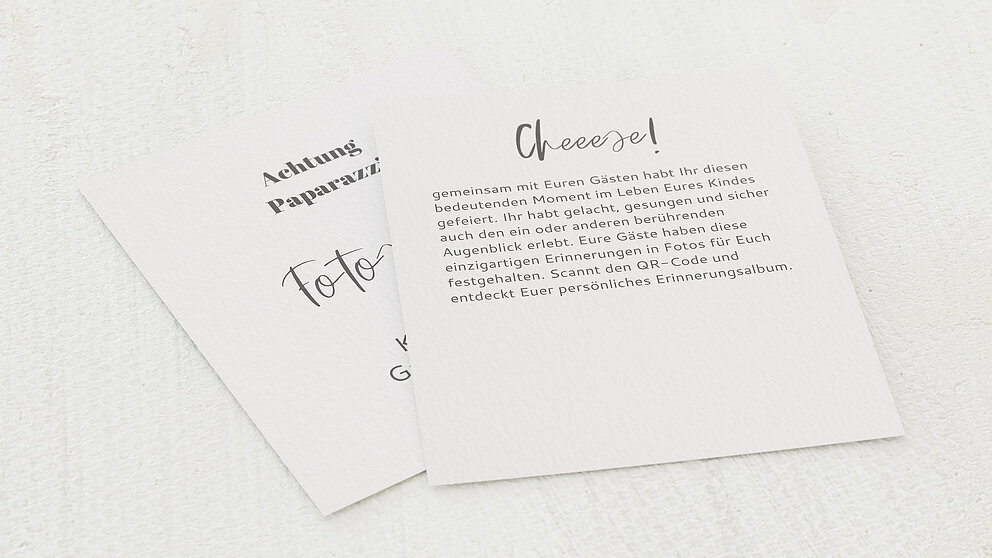 Achtung
Paparazzi
Foto
K
G
Cheeese!
gemeinsam mit Euren Gästen habt Ihr diesen
bedeutenden Moment im Leben Eures Kindes
gefeiert. Ihr habt gelacht, gesungen und sicher
auch den ein oder anderen berührenden
Augenblick erlebt. Eure Gäste haben diese
einzigartigen Erinnerungen in Fotos für Euch
festgehalten. Scannt den QR-Code und
entdeckt Euer persönliches Erinnerungsalbum.